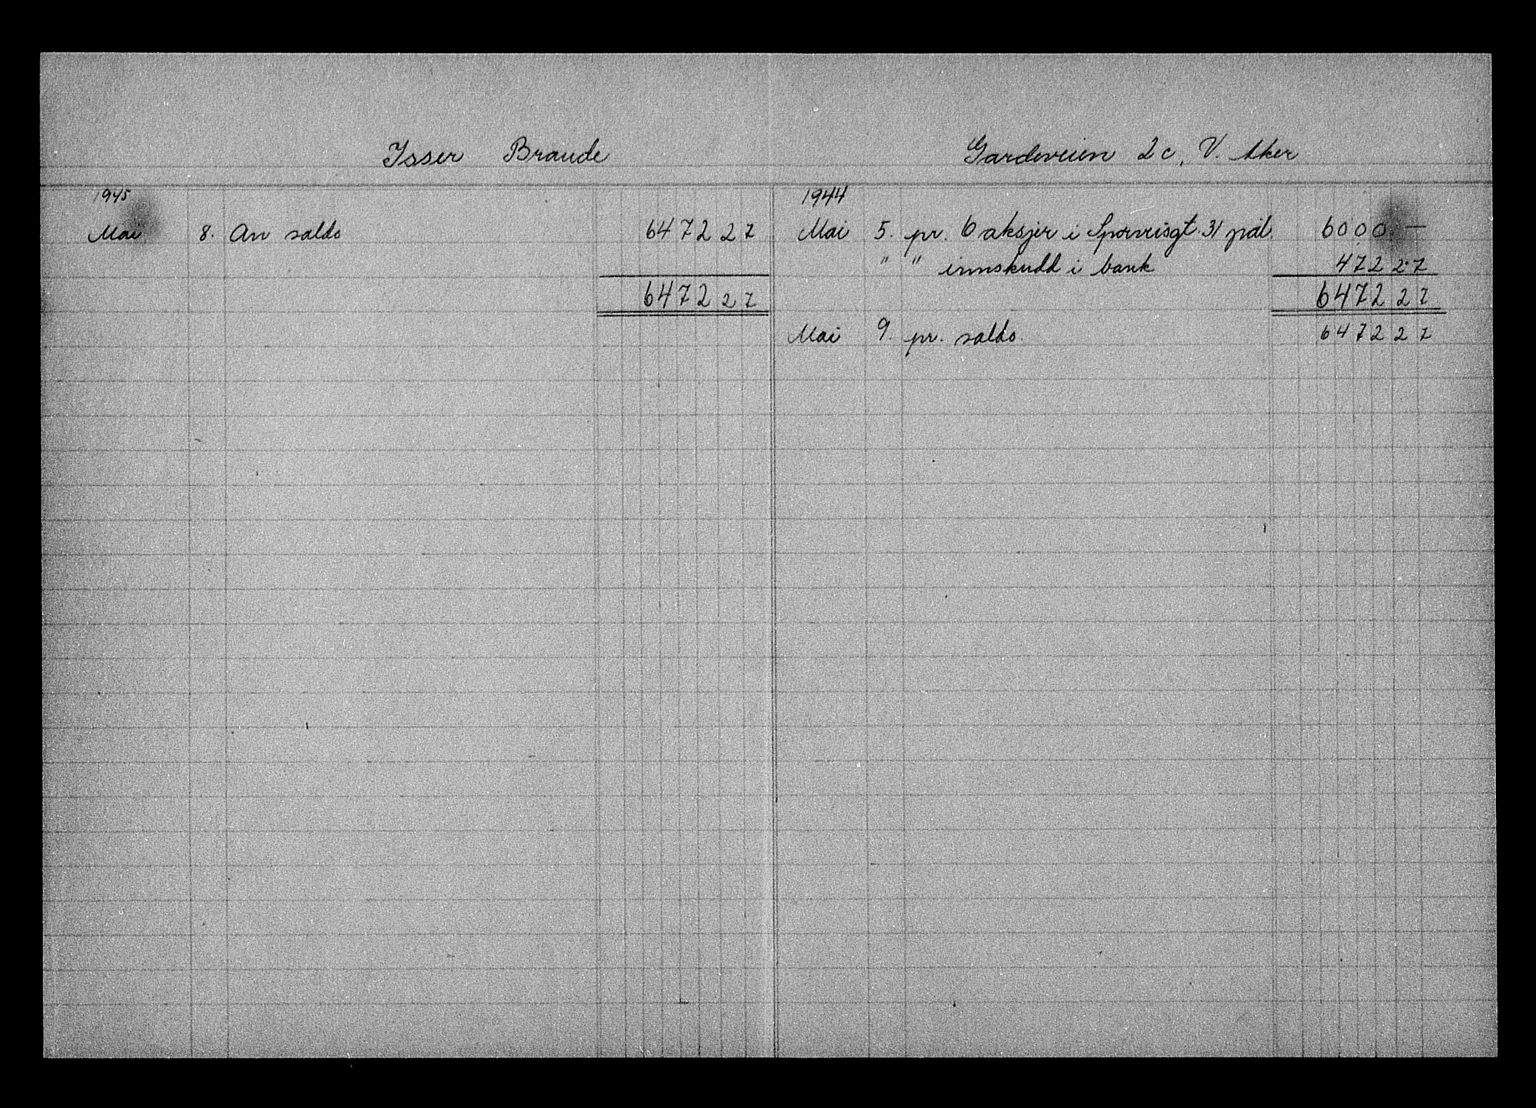 Isser Braude
Gardeveien 2c, V. Aker
1945
Mai 8. An saldo 6472 27
6472 27
1944
Mai 5. pr. 6 aksjer i Sporveisgt. 31 pål. 6000. —
" " innskudd i bank 472 27
6472 27
Mai 9. pr. saldo 6472 27